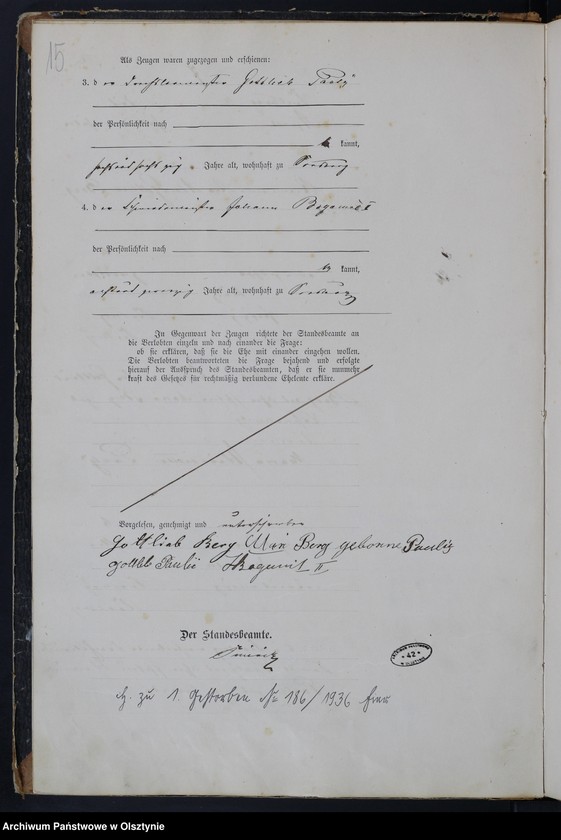 15
Als Zeugen waren zugezogen und erschienen:
3. d er Gottlieb Pauly
der Persönlichkeit nach
be kannt,
sechsundsechzig Jahre alt, wohnhaft zu
4. d er Schmiedemeister Johann Bogumil II
der Persönlichkeit nach
be kannt,
achtundzwanzig Jahre alt, wohnhaft zu
In Gegenwart der Zeugen richtete der Standesbeamte an
die Verlobten einzeln und nach einander die Frage:
ob sie erklären, daß sie die Ehe mit einander eingehen wollen.
Die Verlobten beantworteten die Frage bejahend und erfolgte
hierauf der Ausspruch des Standesbeamten, daß er sie nunmehr
kraft des Gesetzes für rechtmäßig verbundene Eheleute erkläre.
Vorgelesen, genehmigt und unterschrieben
Gottlieb Berg Berg geborne Paulig
gottlib J Bogumil II
Der Standesbeamte.
H. zu 1. Gestorben № 186/1936 hier
42
Archiwum Państwowe w Olsztynie